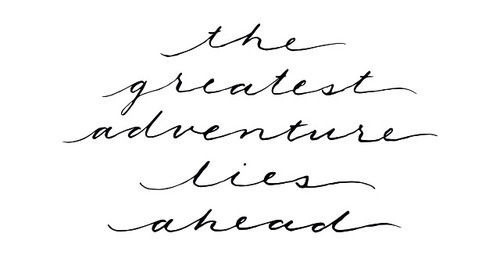 the
greatest
adventure
lies
ahead